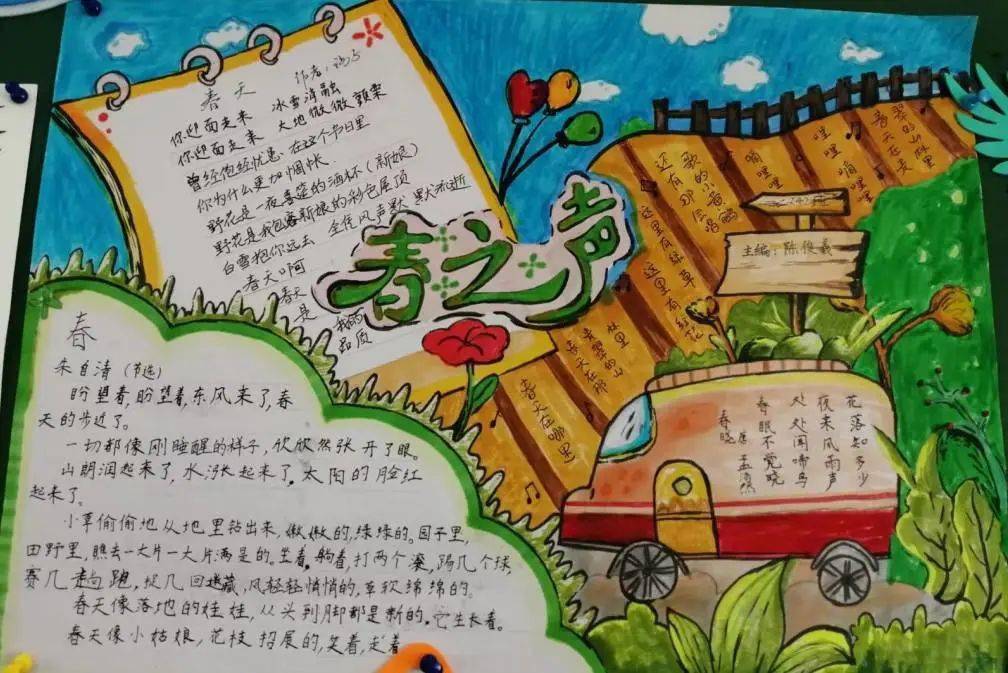 春天 作者:海子
你迎面走来 冰雪消融
你迎面走来 大地微微颤栗
曾经饱经忧患 在这个节日里
你为什么更加惆怅
野花是一夜喜筵的酒杯(新娘)
野花是我包容新娘的彩色屋顶
白雪抱你远去 全凭风声默默流逝
春天啊
春天
是
我的
品质
春之声
主编:陈俊羲
春天在哪里
春天在那
青翠的山
林里
这里有红花
这里有绿草
还有那会唱
歌的小黄鹂
嘀哩哩
春晓
唐 孟浩然
春眠不觉晓
处处闻啼鸟
夜来风雨声
花落知多少
春
朱自清(节选)
盼望着,盼望着,东风来了,春
天的步近了。
一切都像刚睡醒的样子,欣欣然张开了眼。
山朗润起来了,水涨起来了,太阳的脸红
起来了。
小草偷偷地从地里钻出来,嫩嫩的,绿绿的。园子里,
田野里,瞧去一大片一大片满是的。坐着,躺着,打两个滚,踢几个球,
赛几趟跑,捉几回迷藏,风轻轻悄悄的,草软绵绵的。
春天像落地的娃娃,从头到脚都是新的。它生长着。
春天像小姑娘,花枝招展的,笑着,走着